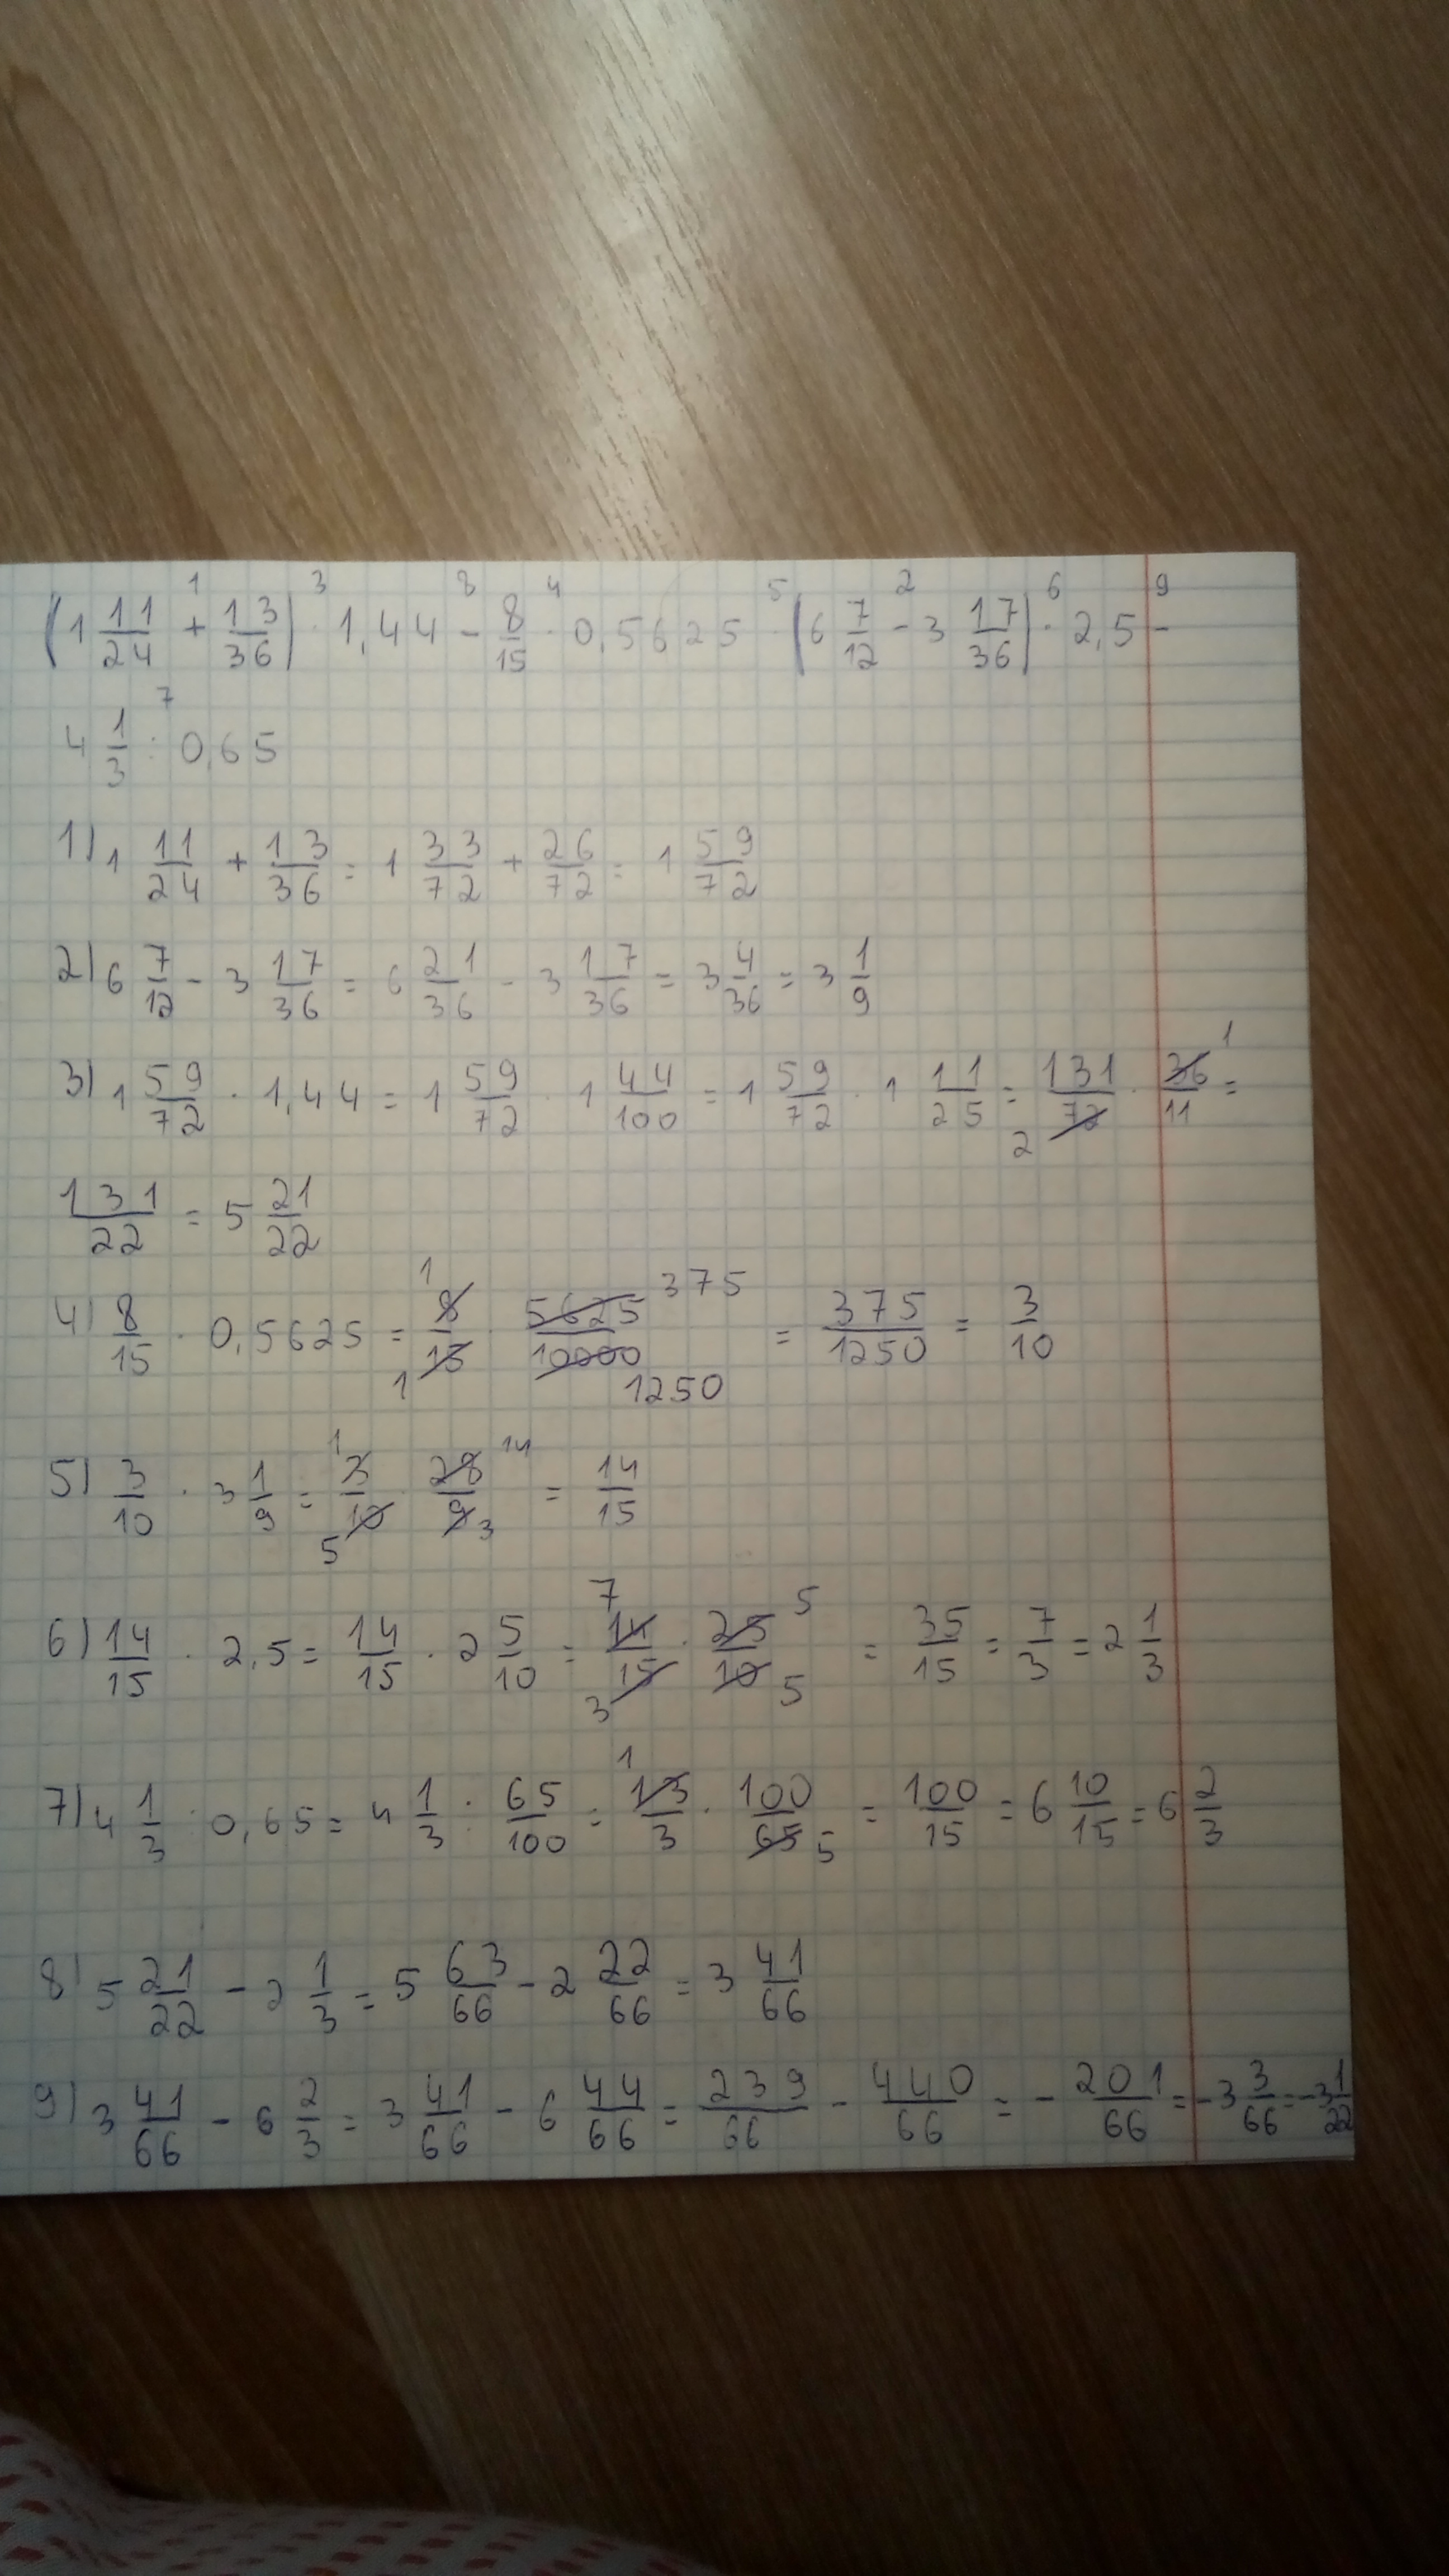 (1 11/24 + 13/36) · 1,44 - 8/15 · 0,5625 · (6 7/12 - 3 17/36) · 2,5 -
4 1/3 : 0,65
1) 1 11/24 + 13/36 = 1 33/72 + 26/72 = 1 59/72
2) 6 7/12 - 3 17/36 = 6 21/36 - 3 17/36 = 3 4/36 = 3 1/9
3) 1 59/72 · 1,44 = 1 59/72 · 1 44/100 = 1 59/72 · 1 11/25 = 131/72 · 36/11 =
131/22 = 5 21/22
4) 8/15 · 0,5625 = 8/15 · 5625/10000 = 375/1250 = 3/10
5) 3/10 · 3 1/9 = 3/10 · 28/9 = 14/15
6) 14/15 · 2,5 = 14/15 · 2 5/10 = 14/15 · 25/10 = 35/15 = 7/3 = 2 1/3
7) 4 1/3 : 0,65 = 4 1/3 : 65/100 = 13/3 · 100/65 = 100/15 = 6 10/15 = 6 2/3
8) 5 21/22 - 2 1/3 = 5 63/66 - 2 22/66 = 3 41/66
9) 3 41/66 - 6 2/3 = 3 41/66 - 6 44/66 = 239/66 - 440/66 = - 201/66 = -3 3/66 = -3 1/22